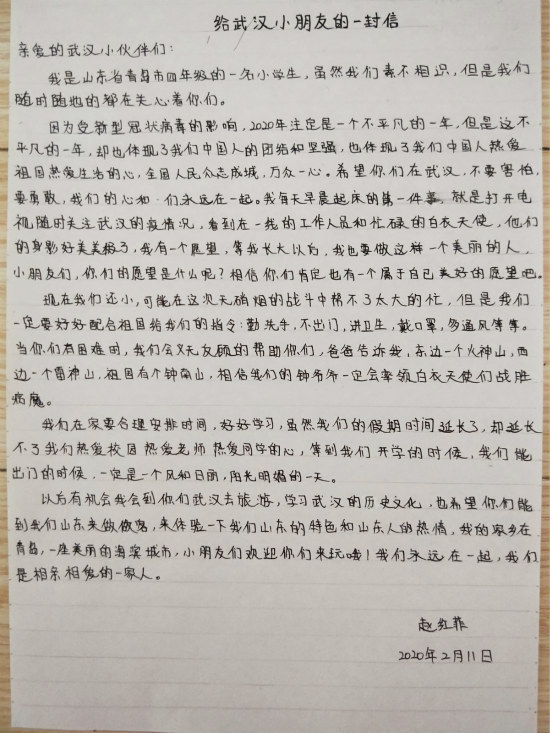 给武汉小朋友的一封信
亲爱的武汉小伙伴们：
我是山东省青岛市四年级的一名小学生，虽然我们素不相识，但是我们
随时随地的都在关心着你们。
因为受新型冠状病毒的影响，2020年注定是一个不平凡的一年，但是这不
平凡的一年，却也体现了我们中国人的团结和坚强，也体现了我们中国人热爱
祖国热爱生活的心，全国人民众志成城，万众一心。希望你们在武汉，不要害怕，
要勇敢，我们的心和 们永远在一起。我每天早晨起床的第一件事，就是打开电
视随时关注武汉的疫情况，看到在一线的工作人员和忙碌的白衣天使，他们
的身影好美美极了，我有一个愿望，等我长大以后，我也要做这样一个美丽的人，
小朋友们，你们的愿望是什么呢？相信你们肯定也有一个属于自己美好的愿望吧。
现在我们还小，可能在这次无硝烟的战斗中帮不了太大的忙，但是我们
一定要好好配合祖国给我们的指令：勤洗手，不出门，讲卫生，戴口罩，多通风等等。
当你们有困难时，我们会义无反顾的帮助你们，爸爸告诉我，东边一个火神山，西
边一个雷神山，祖国有个钟南山，相信我们的钟爷爷一定会率领白衣天使们战胜
病魔。
我们在家要合理安排时间，好好学习，虽然我们的假期时间延长了，却延长
不了我们热爱校园 热爱老师 热爱同学的心，等到我们开学的时候，我们能
出门的时候，一定是一个风和日丽，阳光明媚的一天。
以后有机会我会到你们武汉去旅游，学习武汉的历史文化，也希望你们能
到我们山东来做做客，来体验一下我们山东的特色和山东人的热情，我的家乡在
青岛，一座美丽的海滨城市，小朋友们欢迎你们来玩哦！我们永远在一起，我们
是相亲相爱的一家人。
赵 菲
2020年2月11日